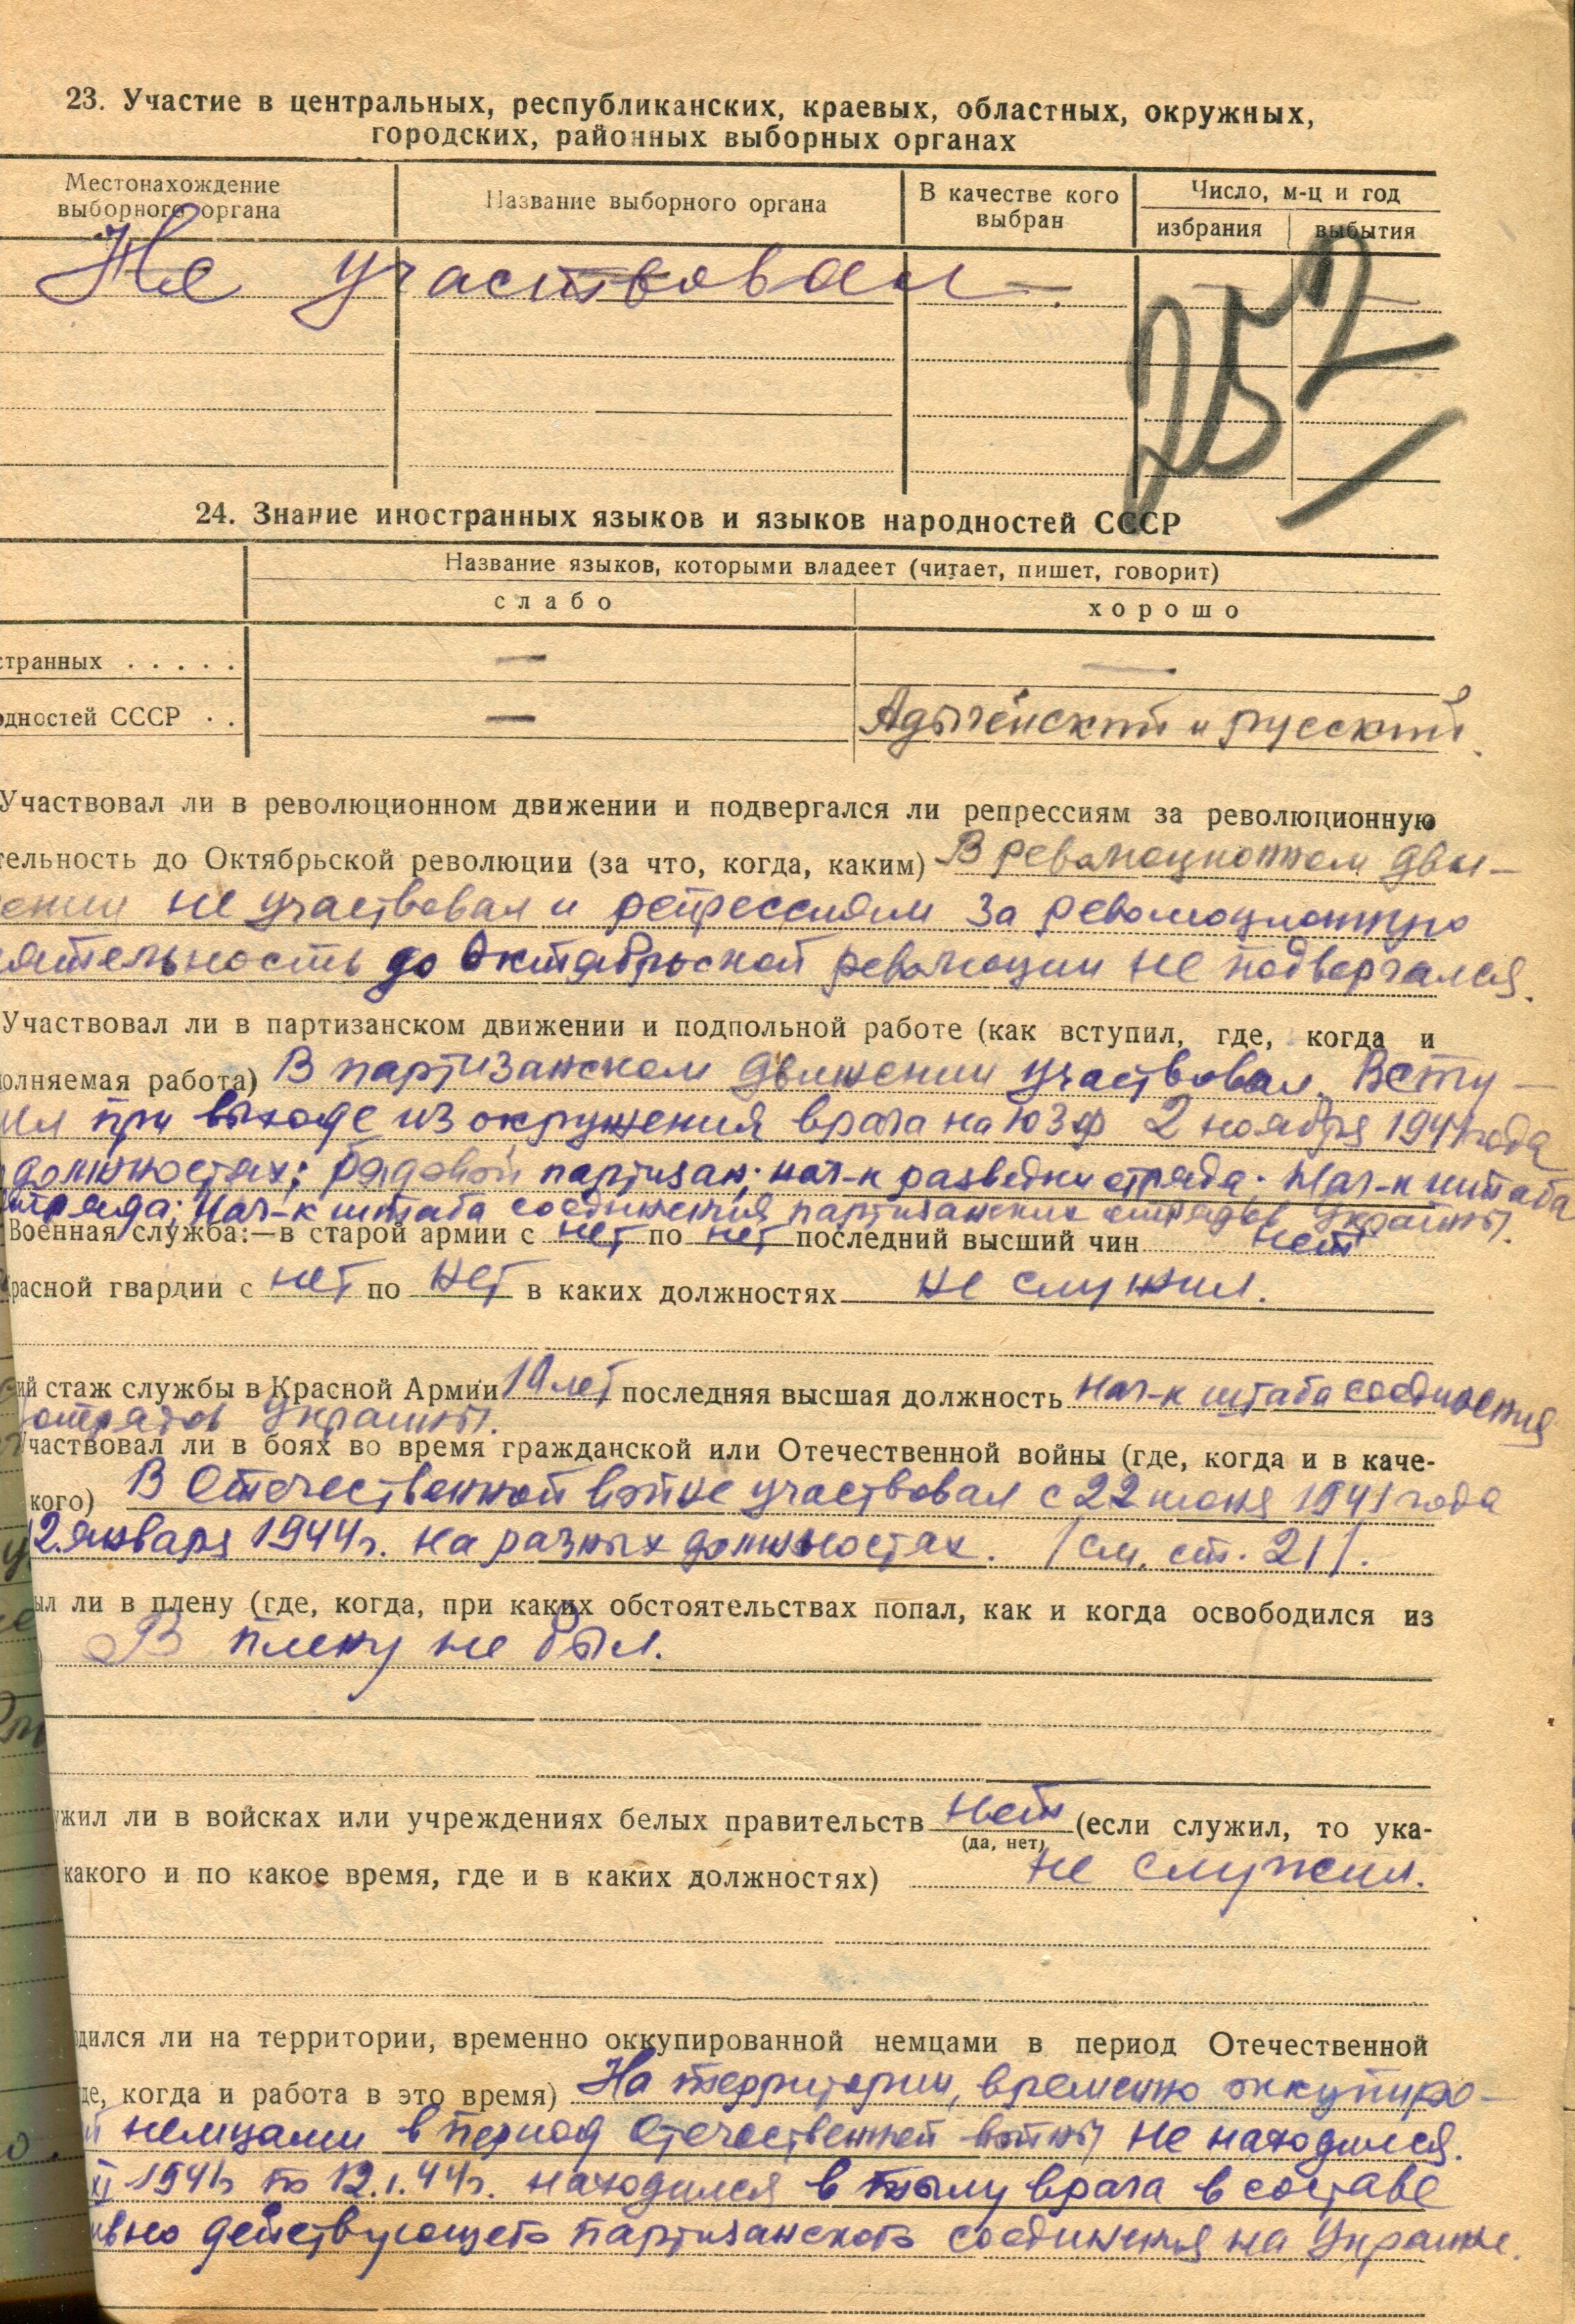 23. Участие в центральных, республиканских, краевых, областных, окружных,
городских, районных выборных органах
Местонахождение
выборного органа
Название выборного органа
В качестве кого
выбран
Число, м-ц и год
избрания
выбытия
Не участвовал —.
252
24. Знание иностранных языков и языков народностей СССР
Название языков, которыми владеет (читает, пишет, говорит)
слабо
хорошо
странных . . . . . — —
одностей СССР . . — Адыгейский и русский.
Участвовал ли в революционном движении и подвергался ли репрессиям за революционную
тельность до Октябрьской революции (за что, когда, каким) В революционном дви-
ении не участвовал и репрессиям за революционную
ятельность до Октябрьской революции не подвергался.
Участвовал ли в партизанском движении и подпольной работе (как вступил, где, когда и
олняемая работа) В партизанском движении участвовал. Всту-
ил при выходе из окружения врага на ЮЗФ 2 ноября 1941 года
должностях: рядовой партизан; нач-к разведки отряда; Нач-к штаба
отряда; Нач-к штаба соединения партизанских отрядов Украины.
Военная служба:—в старой армии с нет по нет последний высший чин нет
расной гвардии с нет по нет в каких должностях не служил.
ий стаж службы в Красной Армии 19 лет последняя высшая должность нач-к штаба соединения
отрядов Украины.
Участвовал ли в боях во время гражданской или Отечественной войны (где, когда и в каче-
кого) В Отечественной войне участвовал с 22 июня 1941 года
12 января 1944г. на разных должностях. /см. ст. 21/.
ыл ли в плену (где, когда, при каких обстоятельствах попал, как и когда освободился из
В плену не был.
ужил ли в войсках или учреждениях белых правительств нет (если служил, то ука-
(да, нет)
какого и по какое время, где и в каких должностях) не служил.
дился ли на территории, временно оккупированной немцами в период Отечественной
де, когда и работа в это время) На территории, временно оккупиро-
й немцами в период Отечественной войны не находился.
XI 1941г по 12.1.44г. находился в тылу врага в составе
ивно действующего партизанского соединения на Украине.